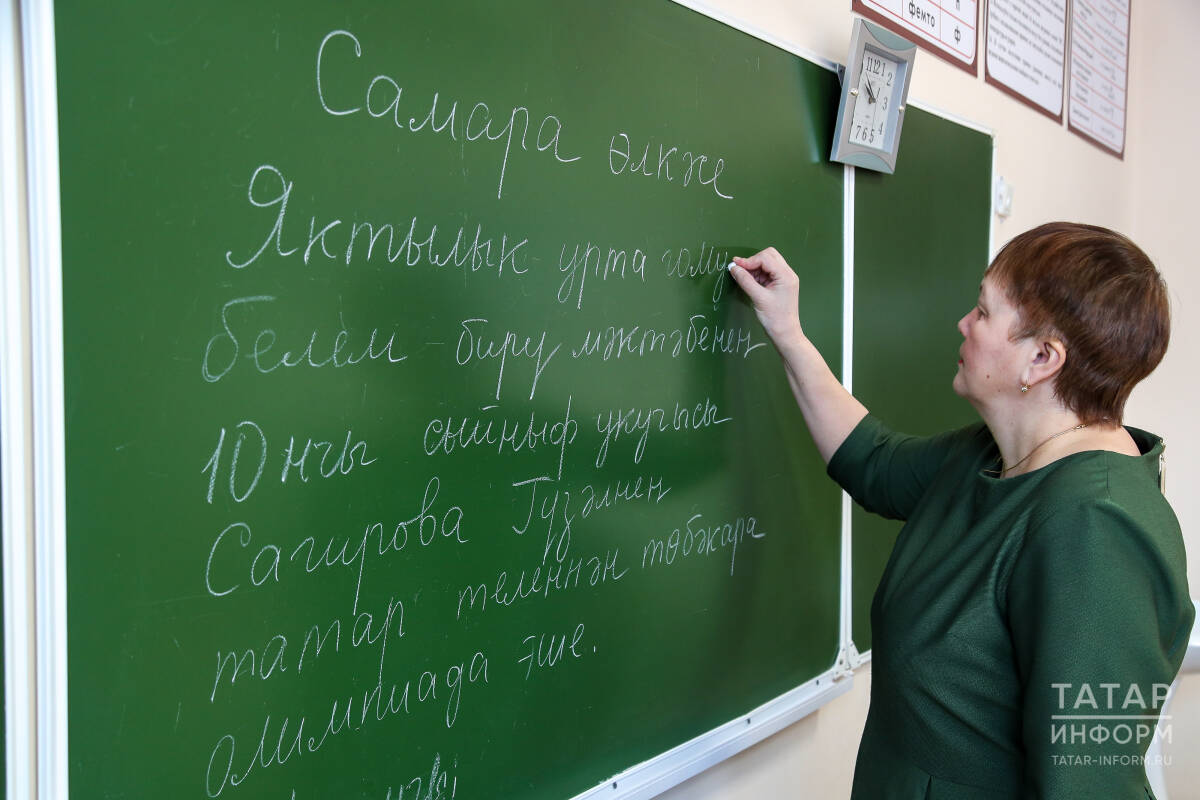 Самара өлкәсе
Яктылык урта гому
белем бирү мәктәбенең
10нчы сыйныф укучысы
Сагирова Гүзәлнең
татар теленнән төбәкара
олимпиада эше.
фемто ф
11 12 1
2
3
4
7 6 5
ТАТАР
ИНФОРМ
TATAR-INFORM.RU